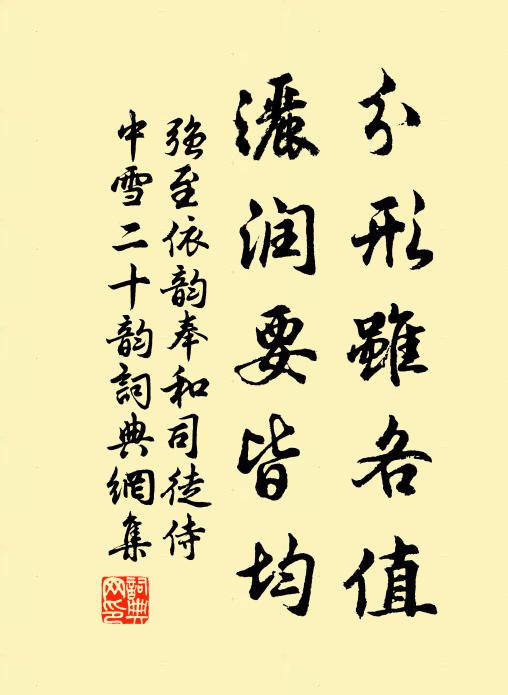 分形雖各值
灑润要皆均
強至依韵奉和司徒侍
中雪二十韵詞典網集